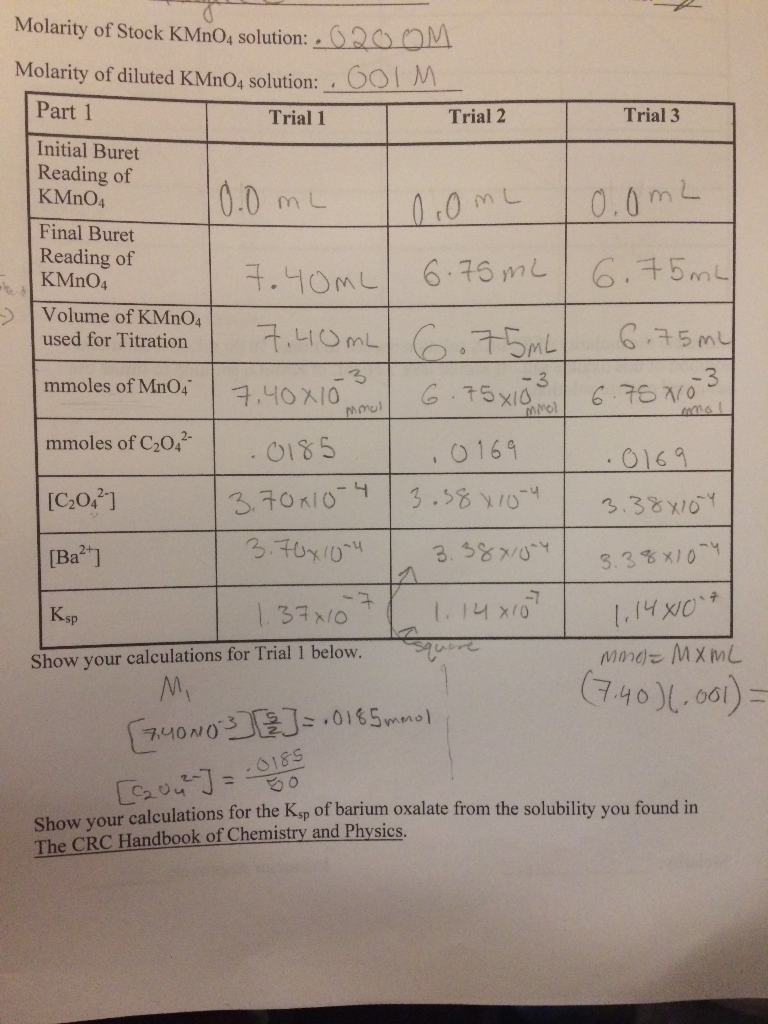 Molarity of Stock KMnO4 solution: .0200M
Molarity of diluted KMnO4 solution: .001M
Part 1 Trial 1 Trial 2 Trial 3
Initial Buret
Reading of
KMnO4 0.0 mL 0.0 mL 0.0 mL
Final Buret
Reading of
KMnO4 7.40mL 6.75mL 6.75mL
Volume of KMnO4
used for Titration 7.40mL 6.75mL 6.75mL
mmoles of MnO4- 7.40x10-3 mmol 6.75x10-3 mmol 6.75x10-3 mmol
mmoles of C2O42- .0185 .0169 .0169
[C2O42-] 3.70x10-4 3.38x10-4 3.38x10-4
[Ba2+] 3.70x10-4 3.38x10-4 3.38x10-4
Ksp 1.37x10-7 1.14x10-7 1.14x10-7
square
Show your calculations for Trial 1 below. mmol= MxmL
M1 (7.40)(.001)=
[7.40x10-3][5/2]=.0185mmol
[C2O42-] = .0185/50
Show your calculations for the Ksp of barium oxalate from the solubility you found in
The CRC Handbook of Chemistry and Physics.